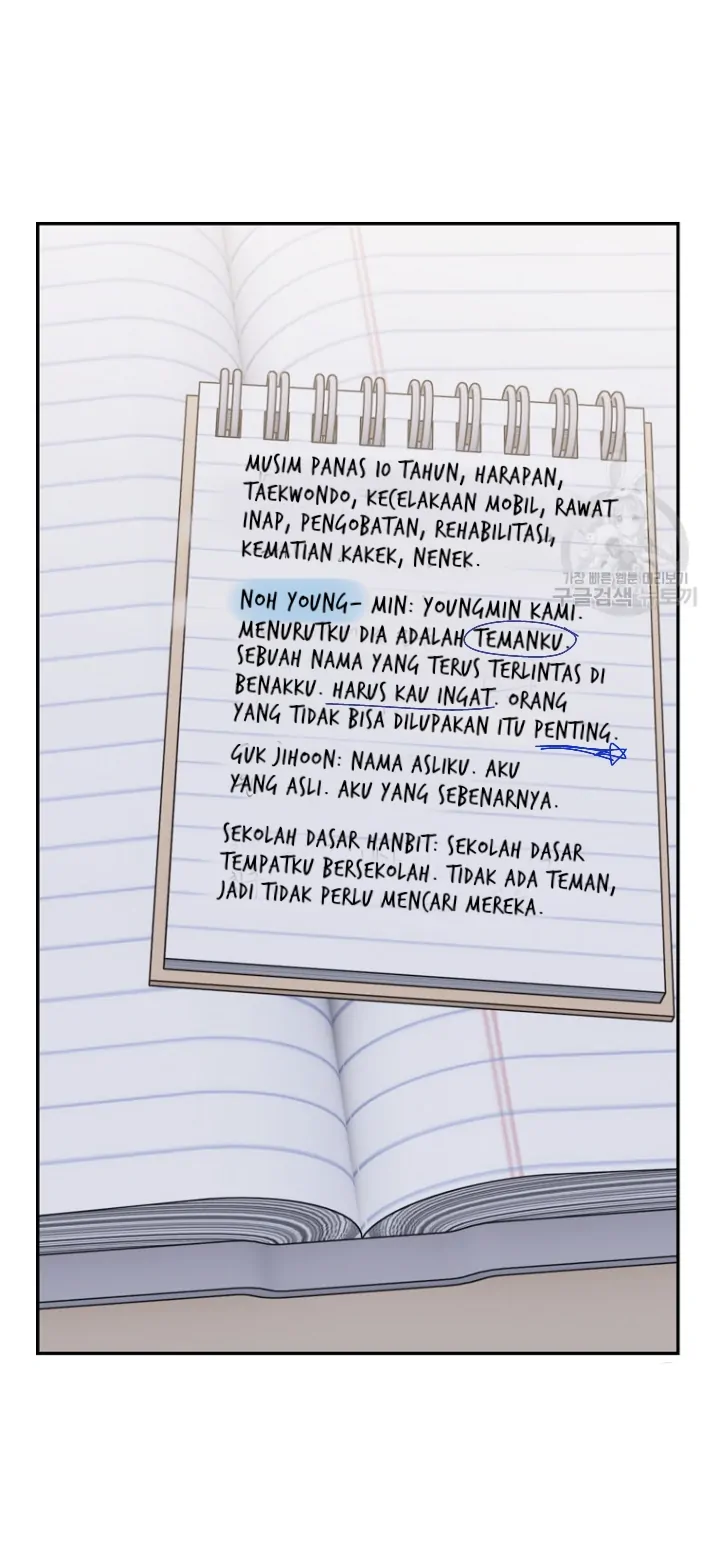 MUSIM PANAS 10 TAHUN, HARAPAN,
TAEKWONDO, KECELAKAAN MOBIL, RAWAT
INAP, PENGOBATAN, REHABILITASI,
KEMATIAN KAKEK, NENEK.
NOH YOUNG- MIN: YOUNGMIN KAMI.
MENURUTKU DIA ADALAH TEMANKU.
SEBUAH NAMA YANG TERUS TERLINTAS DI
BENAKKU. HARUS KAU INGAT. ORANG
YANG TIDAK BISA DILUPAKAN ITU PENTING.
GUK JIHOON: NAMA ASLIKU. AKU
YANG ASLI. AKU YANG SEBENARNYA.
SEKOLAH DASAR HANBIT: SEKOLAH DASAR
TEMPATKU BERSEKOLAH. TIDAK ADA TEMAN,
JADI TIDAK PERLU MENCARI MEREKA.
가장 빠른 웹툰 미리보기
구글검색 뉴토끼